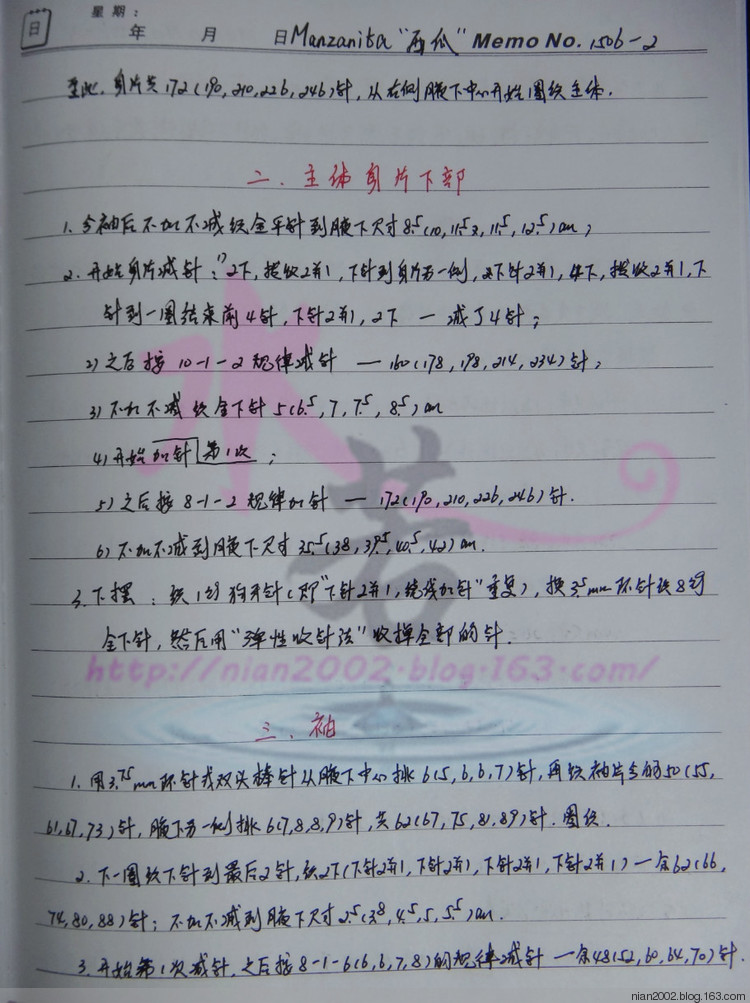 日
星期:
年 月 日 Manzanita "西瓜" Memo No. 1506-2
至此,身片共172(190,210,226,246)针,从右侧腋下中心开始圈织主体.
二.主体身片下部
1.分袖后不加不减织全平针到腋下尺寸8.5(10,11.5,11.5,12.5)cm;
2.开始身片减针:1)2下,拨收2并1,下针到身片另一侧,下针2并1,4下,拨收2并1,下
针到一圈结束前4针,下针2并1,2下 — 减了4针;
2)之后按10-1-2规律减针 — 160(178,198,214,234)针;
3)不加不减织全下针5(6.5,7,7.5,8.5)cm
4)开始加针第1次;
5)之后按8-1-2规律加针 — 172(190,210,226,246)针.
6)不加不减到腋下尺寸35.5(38,39.5,40.5,42)cm.
3.下摆:织1行狗牙针(即"下针2并1,绕线加针"重复),换3.5mm环针织8行
全下针,然后用"弹性收针法"收掉全部的针.
水若
http://nian2002.blog.163.com/
三.袖
1.用3.75mm环针或双头棒针从腋下中心挑6(5,6,6,7)针,再织袖片分的50(55,
61,67,73)针,腋下另一侧挑6(7,8,8,9)针,共62(67,75,81,89)针.圈织.
2.下一圈织下针到最后2针,织2下(下针2并1,下针2并1,下针2并1,下针2并1)—余62(66,
74,80,88)针;不加不减到腋下尺寸2.5(3.8,4.5,5,5.5)cm.
3.开始第1次减针,之后按8-1-6(6,6,7,8)的规律减针 —余48(52,60,64,70)针.
nian2002.blog.163.com